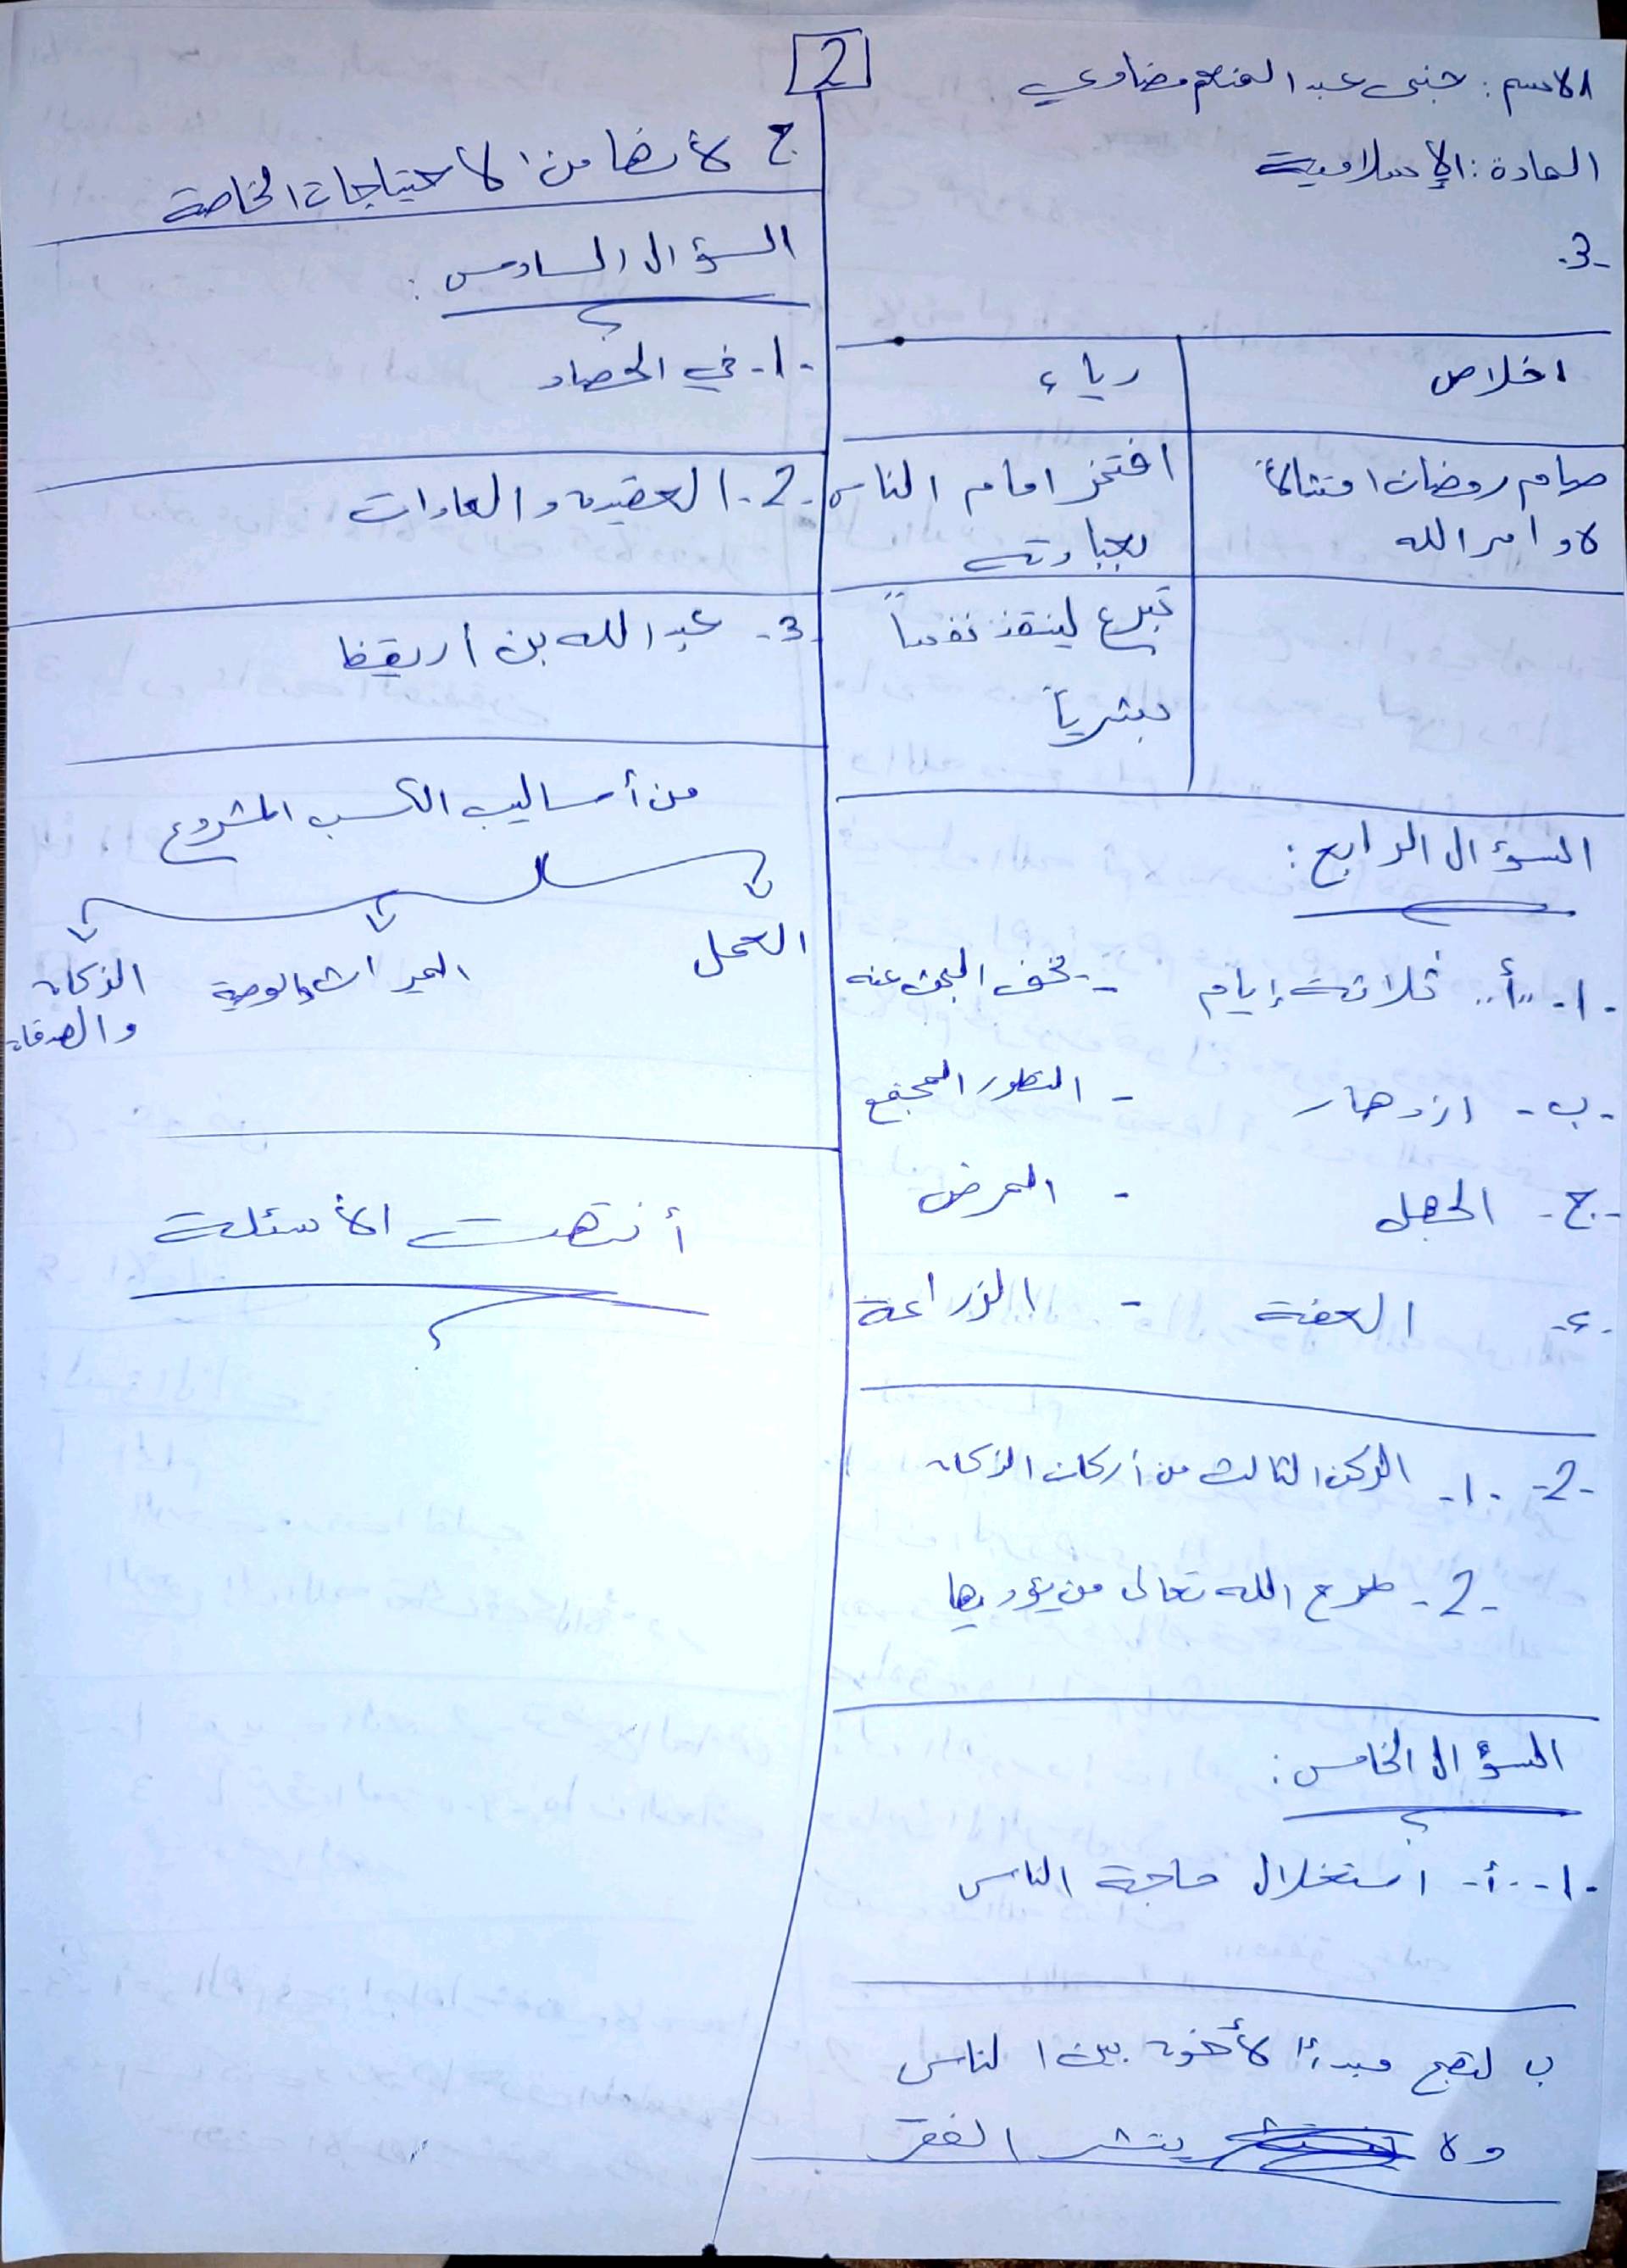 2
الاسم: جنى عبد المنعم مضاوي
المادة: الإسلامية
-3-
اخلاص
رياء
صيام رمضان امتثالاً
لاوامر الله
افتخر امام الناس
بعبادته
تبرع لينقذ نفساً
بشرياً
السؤال الرابع:
-1- "أ" ثلاثة إيام - تخف البحث عنه
-ب- ازدهار - التطور المجتمع
-ج- الجهل - المرض
-د- العفة - الزراعة
-2- -1- الركن الثالث من أركان الزكاة
-2- مدح الله تعالى من يؤديها
السؤال الخامس:
-1- -أ- استغلال حاجة الناس
ب لتصبح مبدأ الأخوة بين الناس
ولا ينتشر الفقر
ج لأنها من الاحتياجات الخاصة
السؤال السادس:
-1- في الحصاد
-2- العقيدة والعادات
-3- عبد الله بن أريقظ
من أساليب الكسب المشروع
العمل
الميراث والوصية
الزكاة
والصدقات
أنتهت الأسئلة